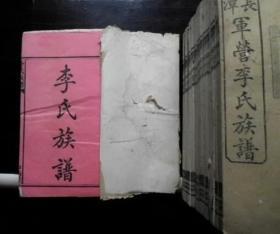 長潭
軍營李氏族譜
李氏族譜